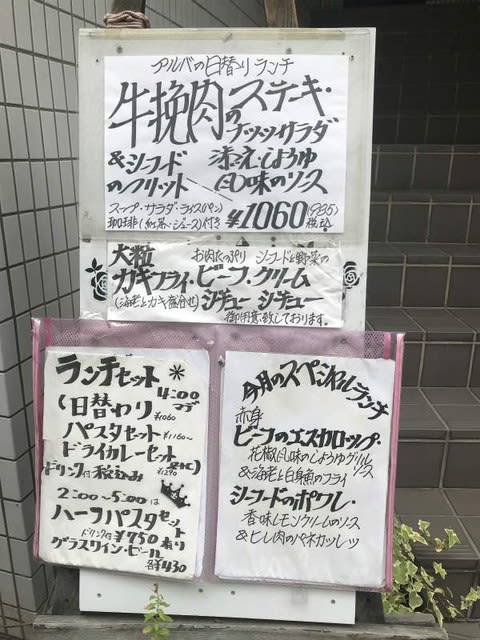 アルバの日替りランチ
牛挽肉のステーキ・
ナッツサラダ
&シーフード 添え・しょうゆ
のフリット 風味のソース
スープ・サラダ・ライス(パン)
珈琲(紅茶・ジュース)付き ¥1060(985)税込
大粒 お肉たっぷり シーフードと野菜の
カキフライ・ビーフ・クリーム
(海老とカキ盛合せ) シチュー シチュー
御用意致しております。
ランチセット
4:00マデ
日替わり ¥1060
パスタセット ¥1160~
ドライカレーセット
¥1290
ドリンク付 税込み
2:00~5:00は
ハーフパスタセット
ドリンク付 ¥750 有り
グラスワイン・ビール
各¥430
今月のスペシャルランチ
赤身
ビーフのエスカロップ・
花椒風味のしょうゆグリルソース
&海老と白身魚のフライ
シーフードのポワレ・
香味レモンクリームのソース
&ヒレ肉のパネカツレツ